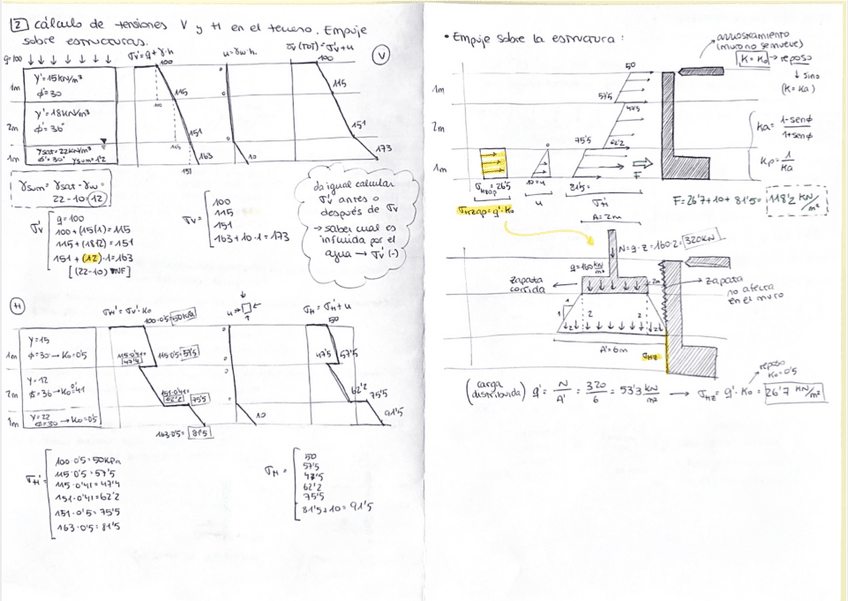 2 cálculo de tensiones V y H en el terreno. Empuje
sobre estructuras.
q=100
σv'=q+γ·h
u=γw·h
σv(TOT)=σv'+u
V
1m
γ'=15kN/m³
φ'=30
2m
γ'=18kN/m³
φ'=36
1m
γsat=22kN/m³
φ'=30
100
115
151
163
10
100
115
151
173
γsum=γsat-γw=
22-10=12
σv'
q=100
100+(15·1)=115
115+(18·2)=151
151+(12)·1=163
[(22-10) NF]
σv=
100
115
151
163+10·1=173
da igual calcular
σv' antes o
después de σv
→ saber cual es
influida por el
agua → σv'(-)
H
σH'=σv'·K0
u→
σH=σH'+u
1m
γ=15
φ=30→K0=0'5
2m
γ=12
φ=36→K0=0'41
1m
γ=22
φ=30→K0=0'5
100·0'5=50kPa
115·0'41=
47'4
115·0'5=57'5
151·0'41=
62'2
75'5
163·0'5=81'5
10
50
47'5
57'5
62'2
75'5
91'5
σH'=
100·0'5=50kPa
115·0'5=57'5
115·0'41=47'4
151·0'41=62'2
151·0'5=75'5
163·0'5=81'5
σH=
50
57'5
47'5
62'2
75'5
81'5+10=91'5
• Empuje sobre la estructura:
arriostramiento
(muro no se mueve)
K=K0→reposo
↓ sino
(K=Ka)
1m
2m
1m
50
57'5
47'5
75'5
62'2
F
10=u
u
81'5
σH
Ka=1-senφ/1+senφ
Kp=1/Ka
σHzap=q'·K0
F=26'7+10+81'5=118'2 kN/m²
A=2m
N=q·z=160·2=320kN
q=160kN/m²
zapata
corrida
zapata
no afecta
en el muro
2
2
A'=6m
σHz
(carga
distribuida) q'=N/A'=320/6=53'3kN/m² → σHz=q'·K0=26'7 kN/m²
reposo
K0=0'5